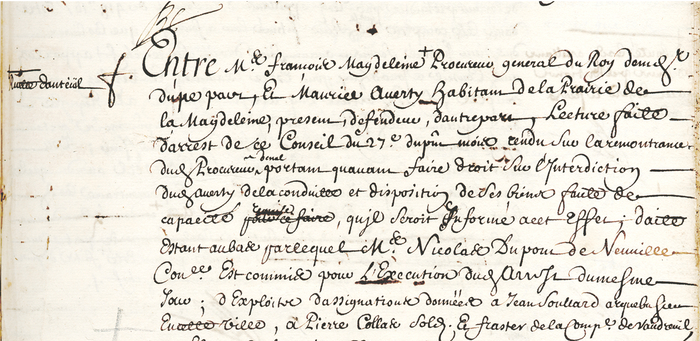 Entre Mre francois Magdeleine + Procureur general du Roy demdr
+ Ruette dauteüil
dune part, Et Maurice Averty habitant de la Prairie de
la Magdeleine, present, deffendeur, dautre part, Lecture faite
darrest de ce Conseil du 27e. du pñt mois rendu sur la remontrance
dud Procureur general portant quavant faire droit sur l'Interdiction
dud Averty de la conduitte et disposition de ses biens faute de
capacité requise, quil seroit Informé a cet Effet; datte
Estant au bas par lequel Mre. Nicolas Dupont de Neuville
Coner Est commis pour L'Execution dud Arrest du mesme
Jour; dExploits dassignations données a Jean Soullard arquebusier
En cette ville, a Pierre Collas Sold. Et frater de la Compe. de Vaudreuil